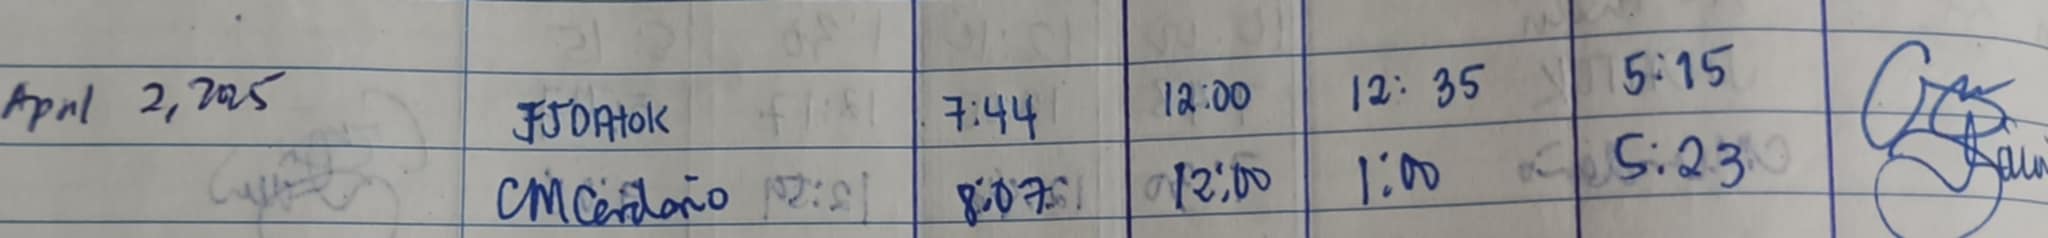 April 2, 2025 FJDAtok 7:44 12:00 12:35 5:15
CMCerdaño 8:07 12:00 1:00 5:23